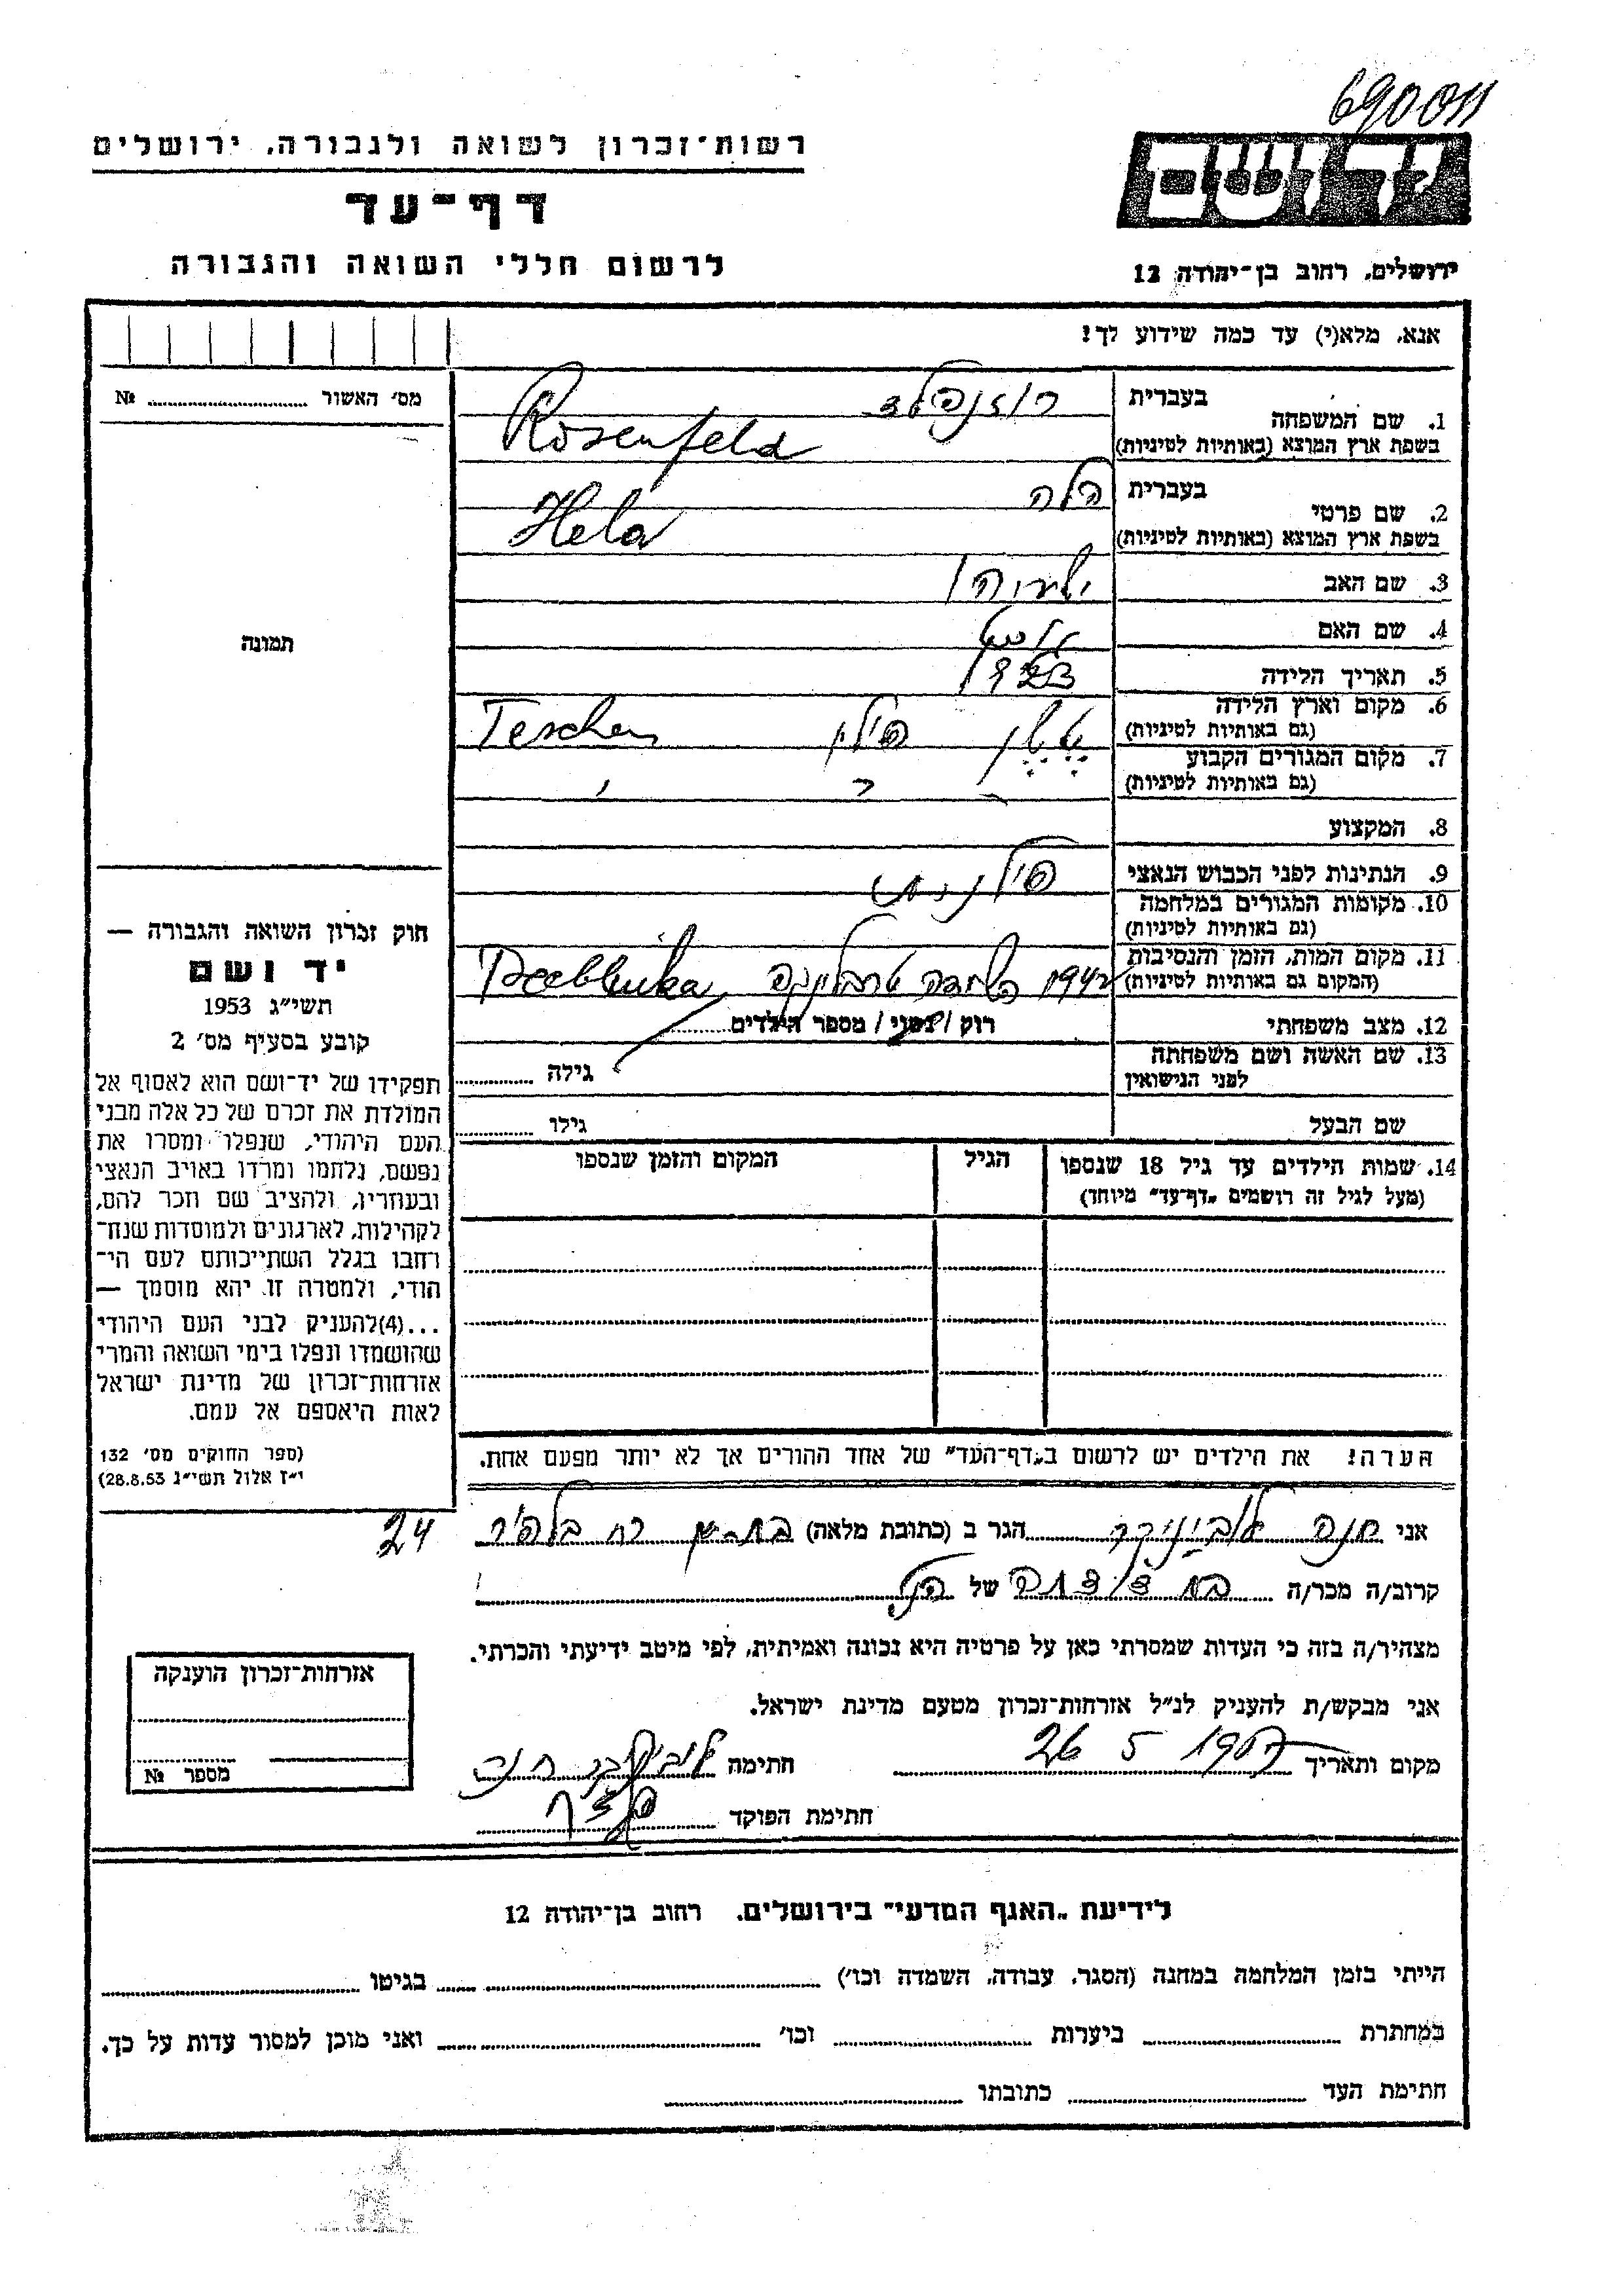 690011
יד ושם
רשות־זכרון לשואה ולגבורה, ירושלים
דף־עד
לרשום חללי השואה והגבורה
ירושלים, רחוב בן־יהודה 12
אנא, מלא(י) עד כמה שידוע לך!
מס׳ האשור ........ №
תמונה
1. שם המשפחה
בעברית רוזנפלד
בשפת ארץ המוצא (באותיות לטיניות) Rosenfeld
2. שם פרטי
בעברית הלה
בשפת ארץ המוצא (באותיות לטיניות) Hela
3. שם האב
4. שם האם
5. תאריך הלידה 1923
6. מקום וארץ הלידה (גם באותיות לטיניות) טשן פולין Teschen
7. מקום המגורים הקבוע (גם באותיות לטיניות)
8. המקצוע
9. הנתינות לפני הכבוש הנאצי פולנית
10. מקומות המגורים במלחמה (גם באותיות לטיניות)
11. מקום המות, הזמן והנסיבות (המקום גם באותיות לטיניות) 1942 השמדה טרבלינקה Treblinka
12. מצב משפחתי רוק / נשוי / מספר הילדים ........
13. שם האשה ושם משפחתה לפני הנישואין גילה ........
שם הבעל גילו ........
14. שמות הילדים עד גיל 18 שנספו
(מעל לגיל זה רושמים „דף־עד״ מיוחד)
הגיל
המקום והזמן שנספו
חוק זכרון השואה והגבורה —
יד ושם
תשי״ג 1953
קובע בסעיף מס׳ 2
תפקידו של יד־ושם הוא לאסוף אל
המולדת את זכרם של כל אלה מבני
העם היהודי, שנפלו ומסרו את
נפשם, נלחמו ומרדו באויב הנאצי
ובעוזריו, ולהציב שם וזכר להם,
לקהילות, לארגונים ולמוסדות שנח־
רחבו בגלל השתייכותם לעם הי־
הודי, ולמטרה זו יהא מוסמך —
...(4)להעניק לבני העם היהודי
שהושמדו ונפלו בימי השואה והמרי
אזרחות־זכרון של מדינת ישראל
לאות היאספם אל עמם.
(ספר החוקים מס׳ 132
י״ז אלול תשי״ג 28.8.53)
הערה! את הילדים יש לרשום ב„דף־העד״ של אחד ההורים אך לא יותר מפעם אחת.
אני חנה הגר ב (כתובת מלאה) בת-ים רח בלפור 24
קרוב/ה מכר/ה בת דודתה של הנ״ל
מצהיר/ה בזה כי העדות שמסרתי כאן על פרטיה היא נכונה ואמיתית, לפי מיטב ידיעתי והכרתי.
אני מבקש/ת להעניק לנ״ל אזרחות־זכרון מטעם מדינת ישראל.
מקום ותאריך 26 5 1967 חתימה חנה
חתימת הפוקד
אזרחות־זכרון הוענקה
מספר №
לידיעת „האגף המדעי״ בירושלים, רחוב בן־יהודה 12
הייתי בזמן המלחמה במחנה (הסגר, עבודה, השמדה וכו׳) ........ בגיטו ........
במחתרת ........ ביערות ........ וכו׳ ........ ואני מוכן למסור עדות על כך.
חתימת העד ........ כתובתו ........